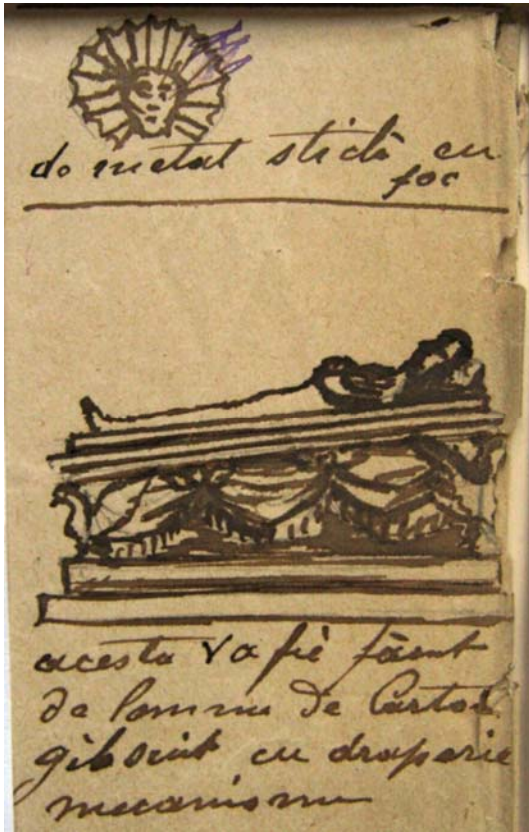 de metal sticlă cu
foc
acesta va fi făcut
de lemnu de Carton
cu draperie
mecanismu